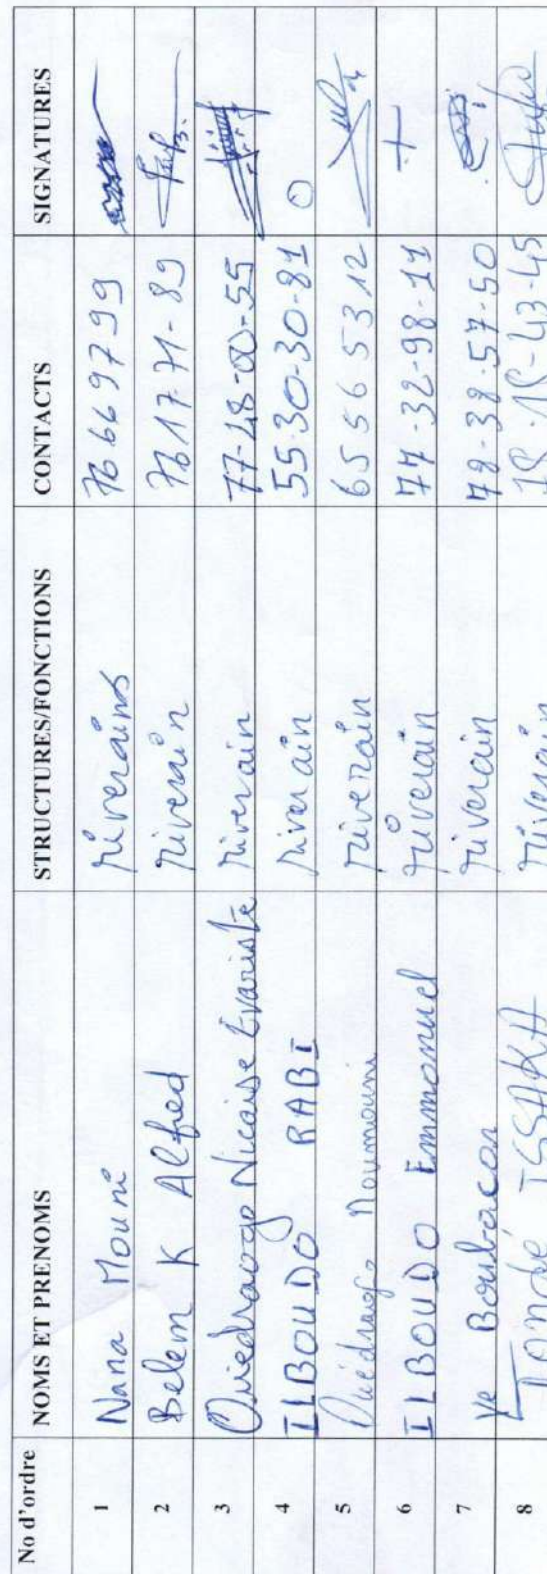 No d'ordre NOMS ET PRENOMS STRUCTURES/FONCTIONS CONTACTS SIGNATURES
1 Nana Mouni riverains 76669799
2 Belem K Alfred riverain 7617-71-89
3 Ouédraogo Nicaise Evariste riverain 77-48-00-55
4 ILBOUDO RABI riverain 55-30-30-81
5 Ouédraogo Noumouni riverain 65565312
6 ILBOUDO Emmanuel riverain 77-32-98-11
7 Ye Boubacar riverain 78-38-57-50
8 ISSAKA riverain